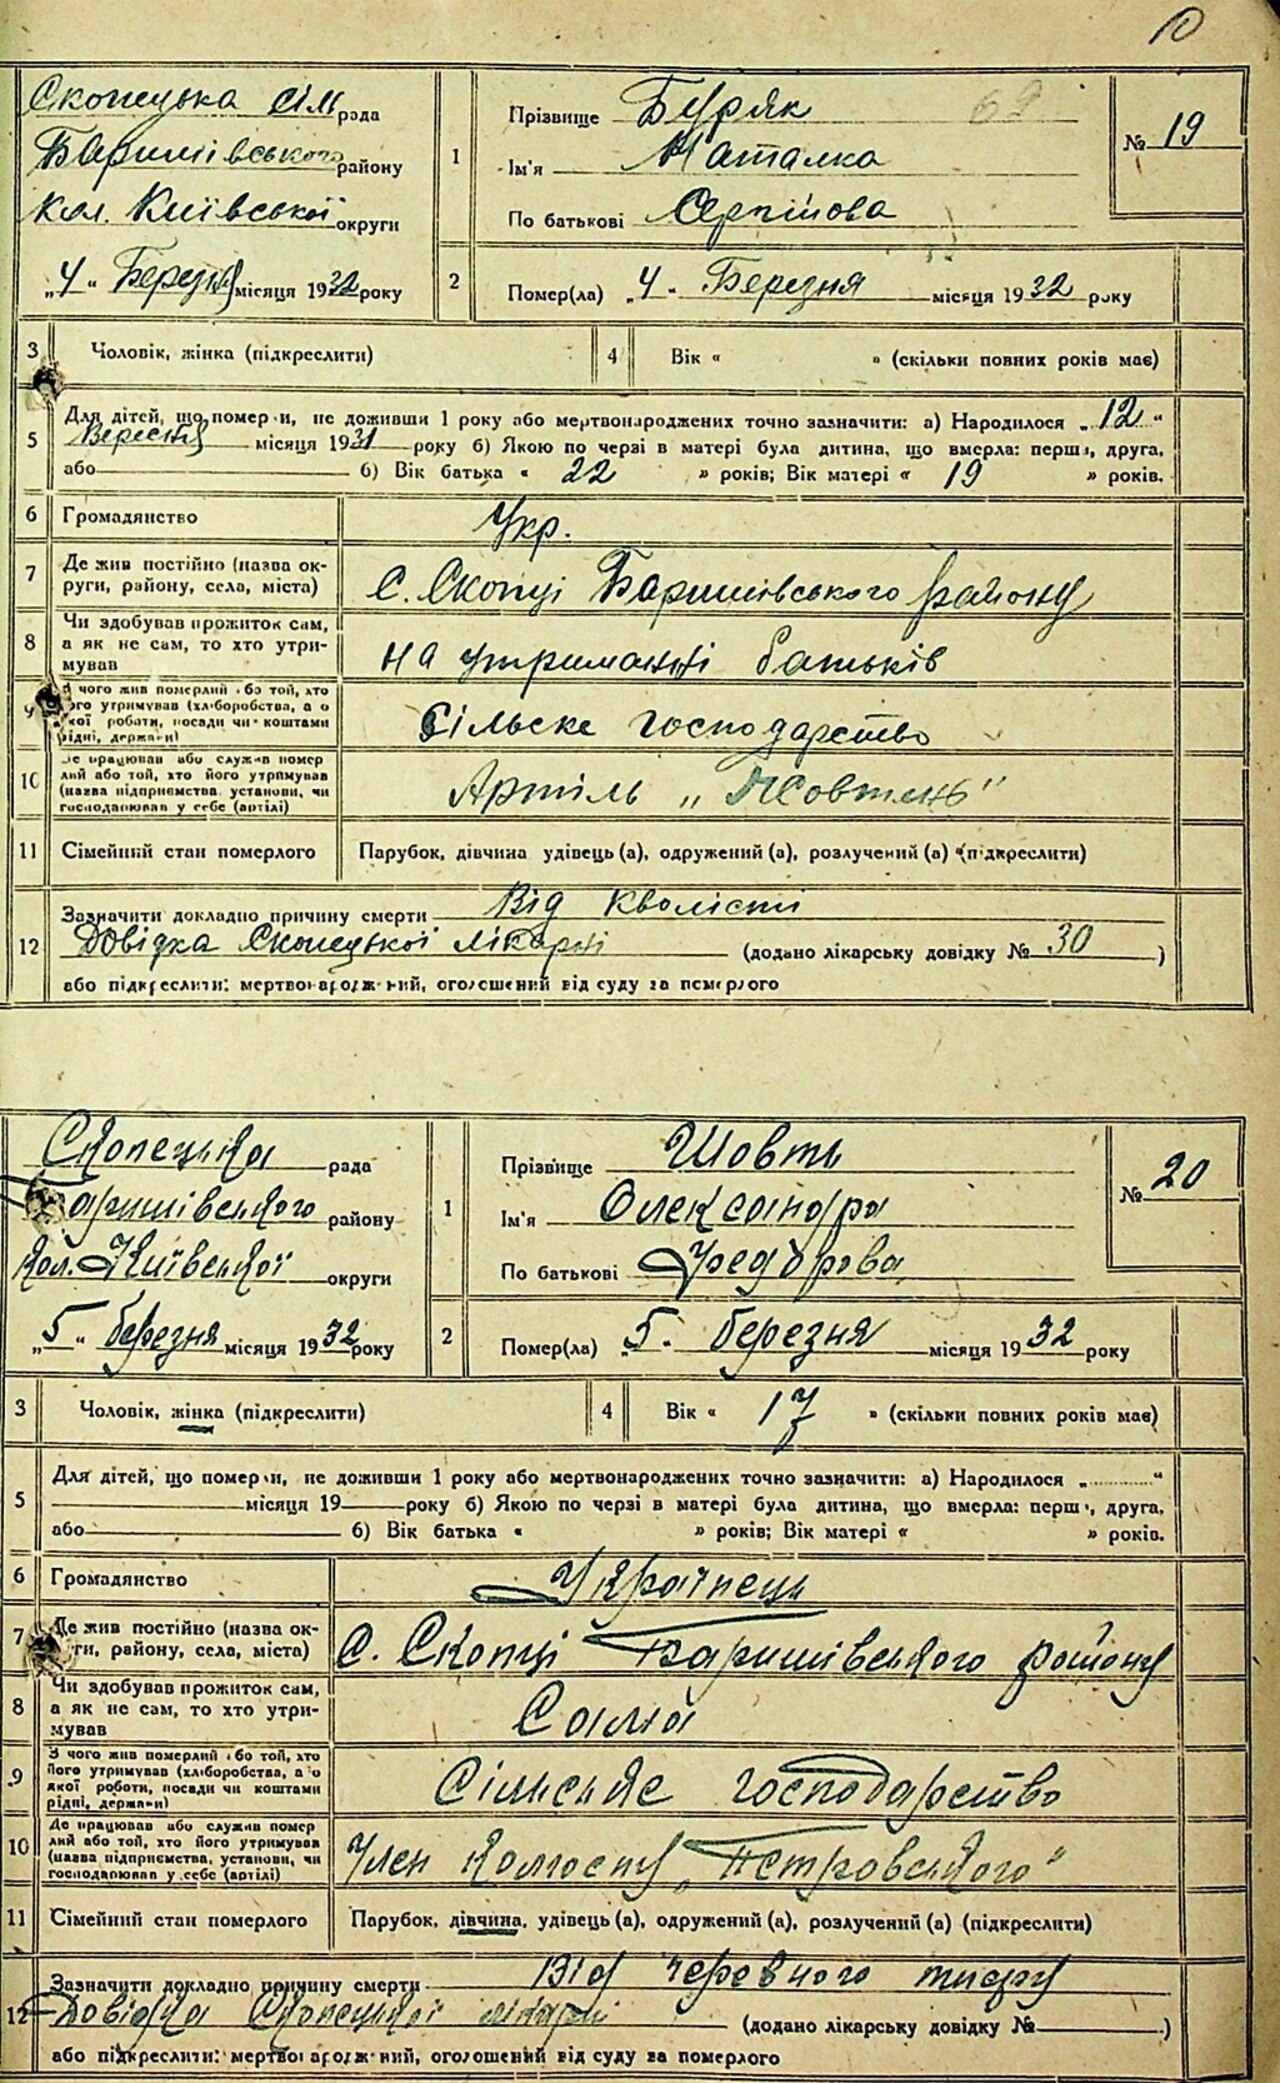 10
Скопецька сіль рада
Баришівського району
Кол. Київської округи
„4" Березня місяця 1932 року
1
Прізвище Буряк
Ім'я Наталка
По батькові Сергійова
№ 19
2
Помер(ла) „4" Березня місяця 1932 року
3 Чоловік, жінка (підкреслити) 4 Вік « » (скільки повних років має)
5
Для дітей, що померли, не доживши 1 року або мертвонароджених точно зазначити: а) Народилося „12"
Вересня місяця 1931 року б) Якою по черзі в матері була дитина, що вмерла: перша, друга,
або б) Вік батька « 22 » років; Вік матері « 19 » років.
6 Громадянство Укр.
7 Де жив постійно (назва ок-
руги, району, села, міста) С. Скопці Баришівського району
8 Чи здобував прожиток сам,
а як не сам, то хто утри-
мував На утриманні батьків
9 З чого жив померлий або той, хто
його утримував (хліборобства, а о
якої роботи, посади чи коштами
рідні, держави) Сільске господарство
10 Де працював або служив помер
лий або той, хто його утримував
(назва підприємства, установи, чи
господарював у себе (артілі) Артіль „Жовтень"
11 Сімейний стан померлого Парубок, дівчина удівець (а), одружений (а), розлучений (а) (підкреслити)
12 Зазначити докладно причину смерти Від кволісти
Довідка Скопецької лікарні (додано лікарську довідку № 30 )
або підкреслити: мертвонароджений, оголошений від суду за померлого
Скопецька рада
Баришівського району
Кол. Київської округи
„5" березня місяця 1932 року
1
Прізвище Шовть
Ім'я Олександра
По батькові Федорова
№ 20
2
Помер(ла) „5" березня місяця 1932 року
3 Чоловік, жінка (підкреслити) 4 Вік « 17 » (скільки повних років має)
5
Для дітей, що померли, не доживши 1 року або мертвонароджених точно зазначити: а) Народилося „ "
місяця 19 року б) Якою по черзі в матері була дитина, що вмерла: перша, друга,
або б) Вік батька « » років; Вік матері « » років.
6 Громадянство Українець
7 Де жив постійно (назва ок-
руги, району, села, міста) С. Скопці Баришівського району
8 Чи здобував прожиток сам,
а як не сам, то хто утри-
мував Сама
9 З чого жив померлий або той, хто
його утримував (хліборобства, а о
якої роботи, посади чи коштами
рідні, держави) Сільське господарство
10 Де працював або служив помер
лий або той, хто його утримував
(назва підприємства, установи, чи
господарював у себе (артілі) Член колгоспу „Петровського"
11 Сімейний стан померлого Парубок, дівчина, удівець (а), одружений (а), розлучений (а) (підкреслити)
12 Зазначити докладно причину смерти Від черевного тифу
Довідка Скопецької лікарні (додано лікарську довідку № )
або підкреслити: мертвонароджений, оголошений від суду за померлого